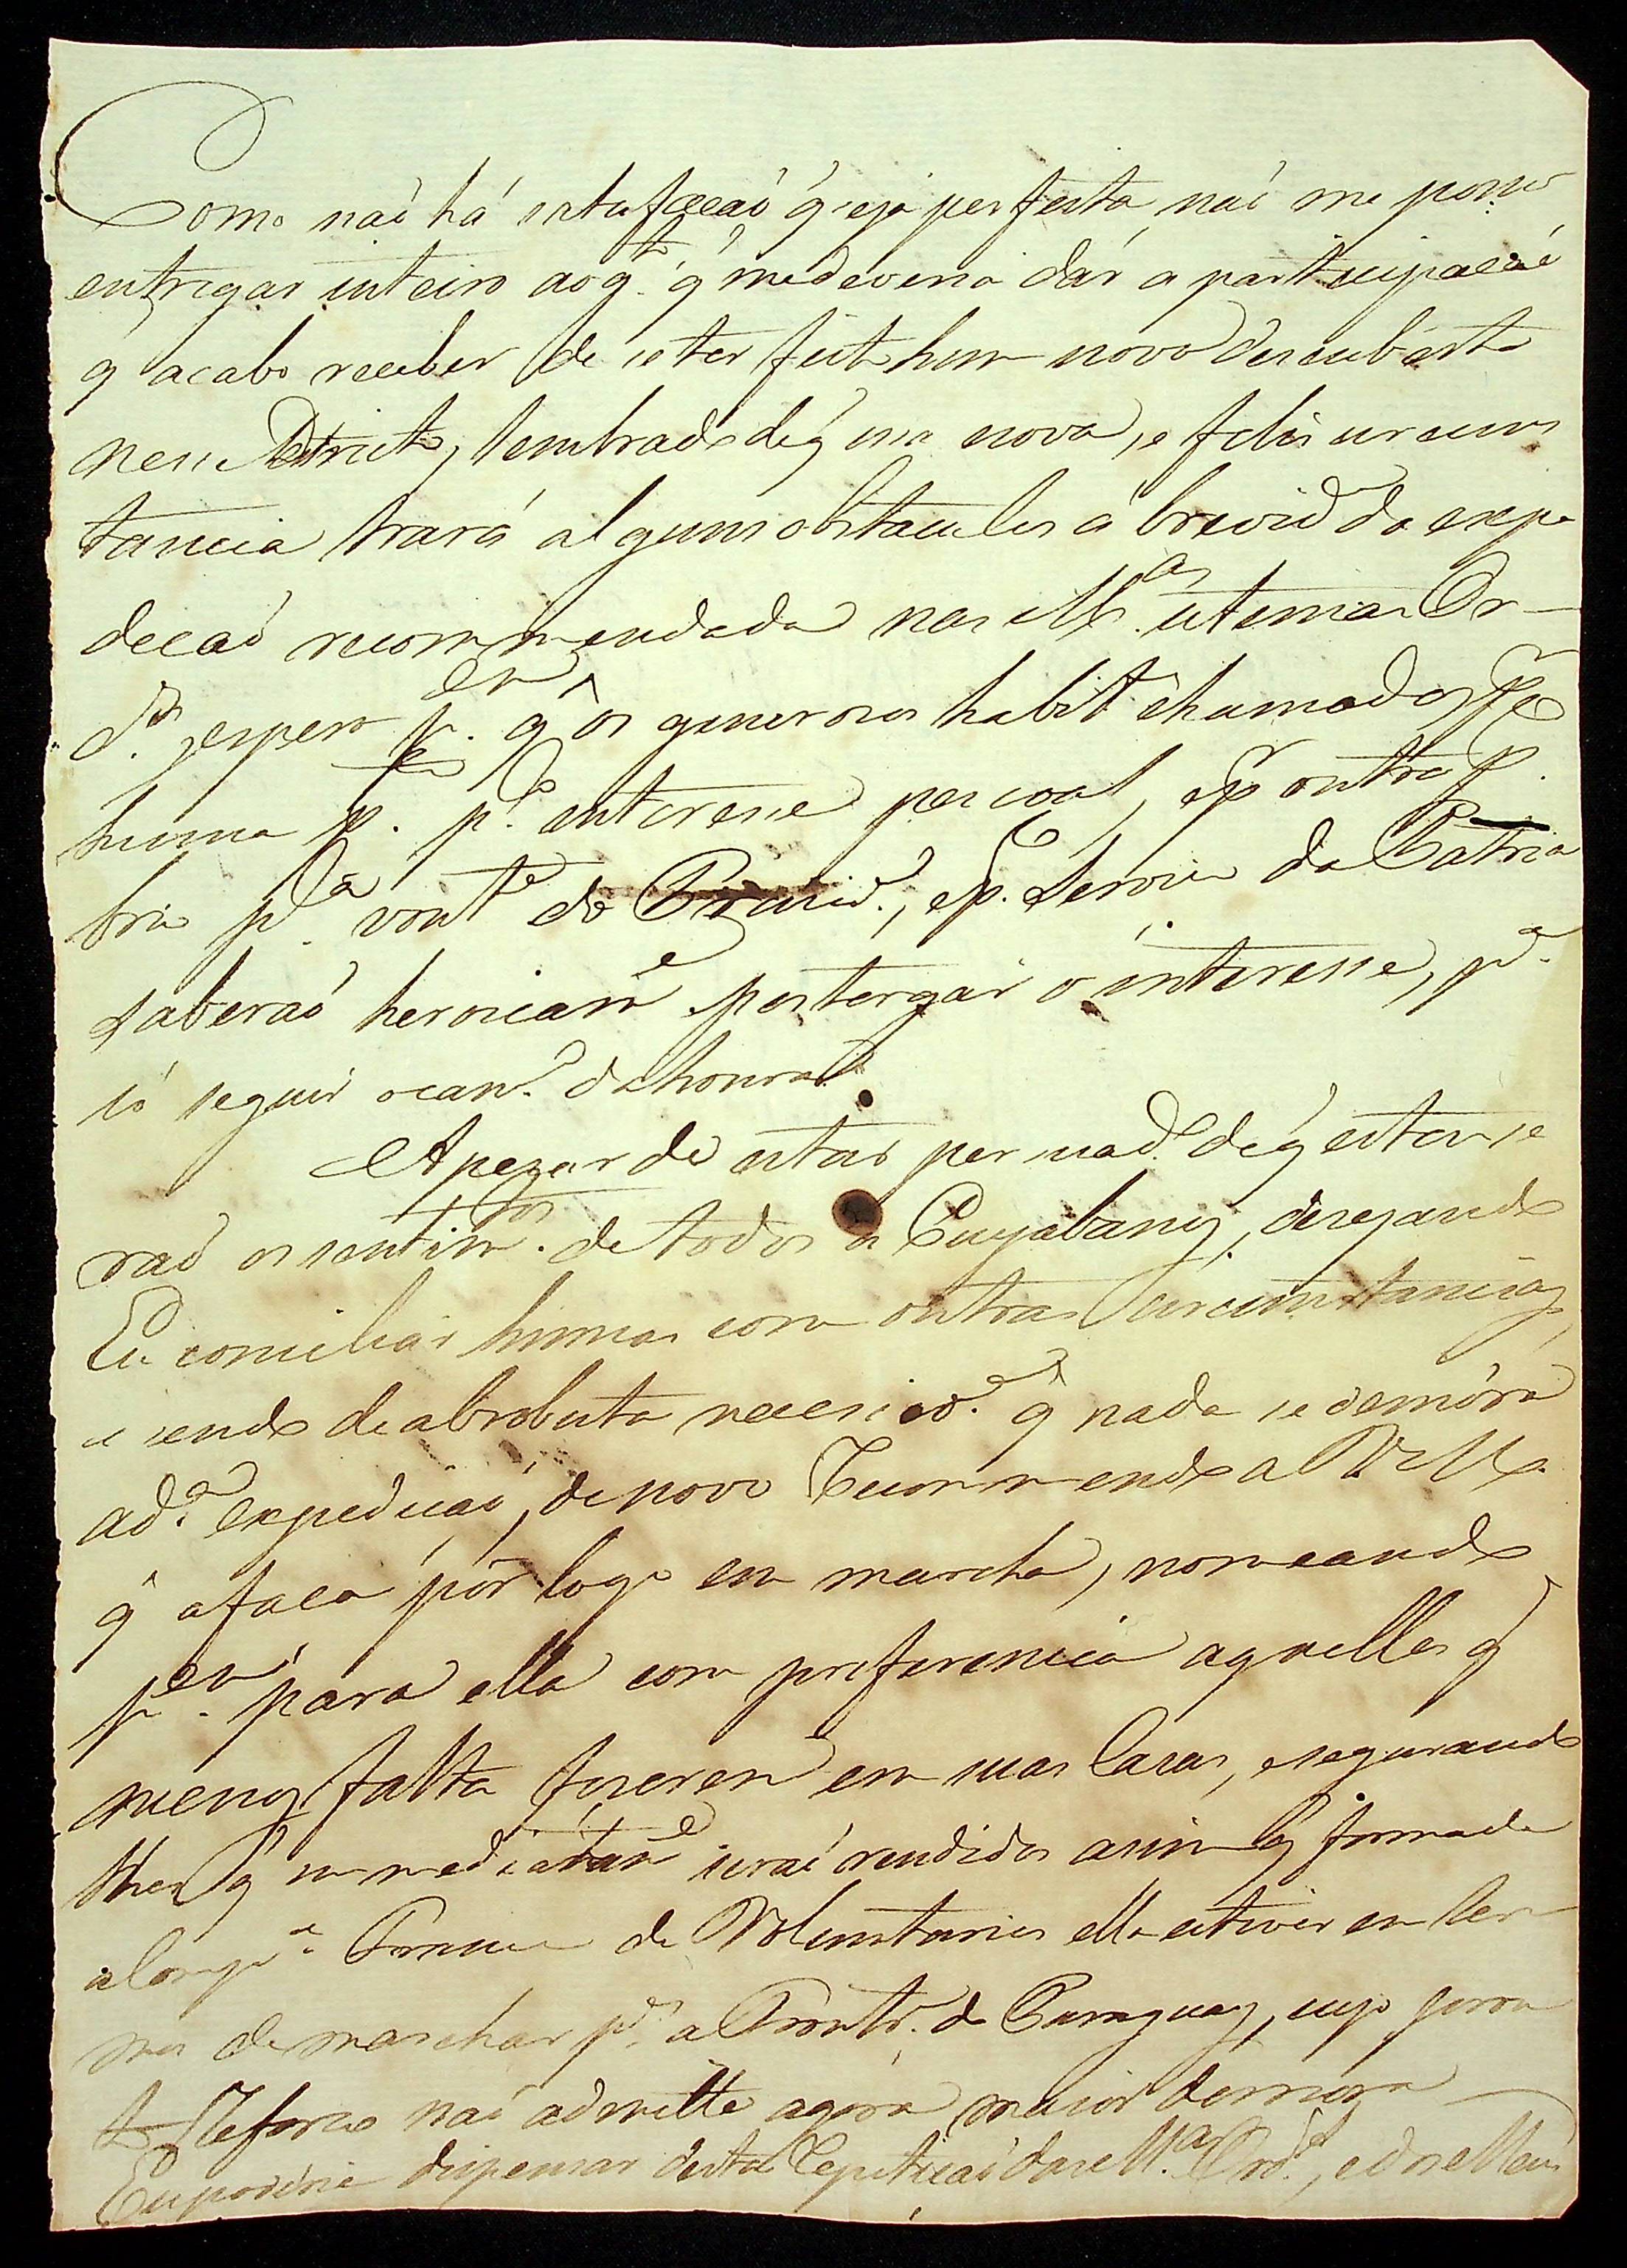 Como naó há satisfaccaó q̃ seja perfeita, naó me posso
entregar inteiro ao g.to q̃ me deveria dár a participacaó
q̃ acabo receber de se ter feito hum novo descuberto
nesse Destricto, lembrado de q̃ essa nova, e feliz circuns
tancia trará alguns obstaculos á brevid.e da expe
decaó recommendada nas M.as ultimas Or-
d.s, espero p.em q̃ os generosos habit.es chamados p.r
huma p.te p.lo interesse pessoal, e p.r outra p.
p.la vont.e do e p.lo Servico da Patria
saberaó heroicam.e postergar o interesse, p.a
só seguir o cam.o da honra.
Apezar de estar persuad.o de q̃ estes se
raó os sentim.tos de todos os Cuyabanos, desejando
Eu conciliar humas com outras circumstancias,
e sendo de absoluta necessid.e q̃ nada se demóre
a d.a expedicaó, de novo Recommendo a VM.
q̃ a faca pôr logo em marcha, nomeando
p.em para ella com preferencia aquelles q̃
menos falta fizerem em suas Casas, e segurando
lhes q̃ immediatam.e seraó rendidos assim q̃ formada
a Comp.a Franca de Voluntarios ella estiver em ter-
mos de marchar p.a a Front.ra do Paraguay, cujo
Reforco naó admitte agora maior demora
Eu poderia dispensar desta Repeticaó das M.as Ord.s, e dos Meus